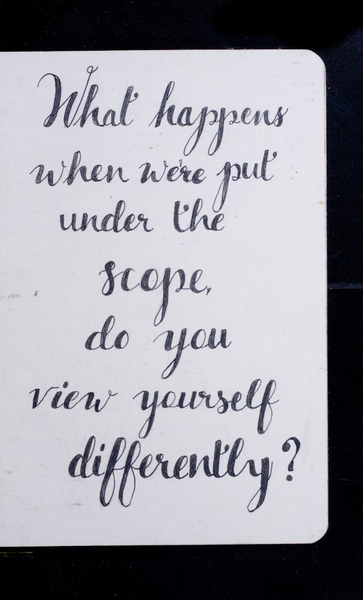 What happens
when we're put
under the
scope,
do you
view yourself
differently?